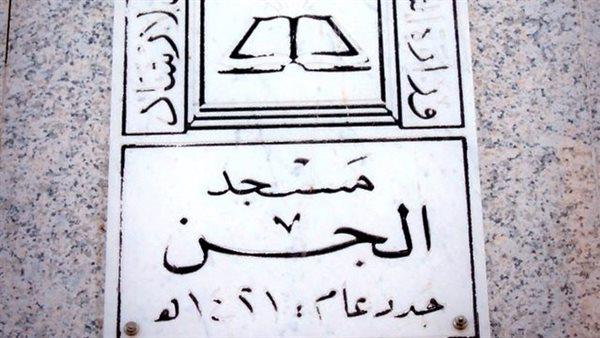 وزارة
الارشاد
مَسْجد
الجن
جدد عام : ١٤٢١هـ